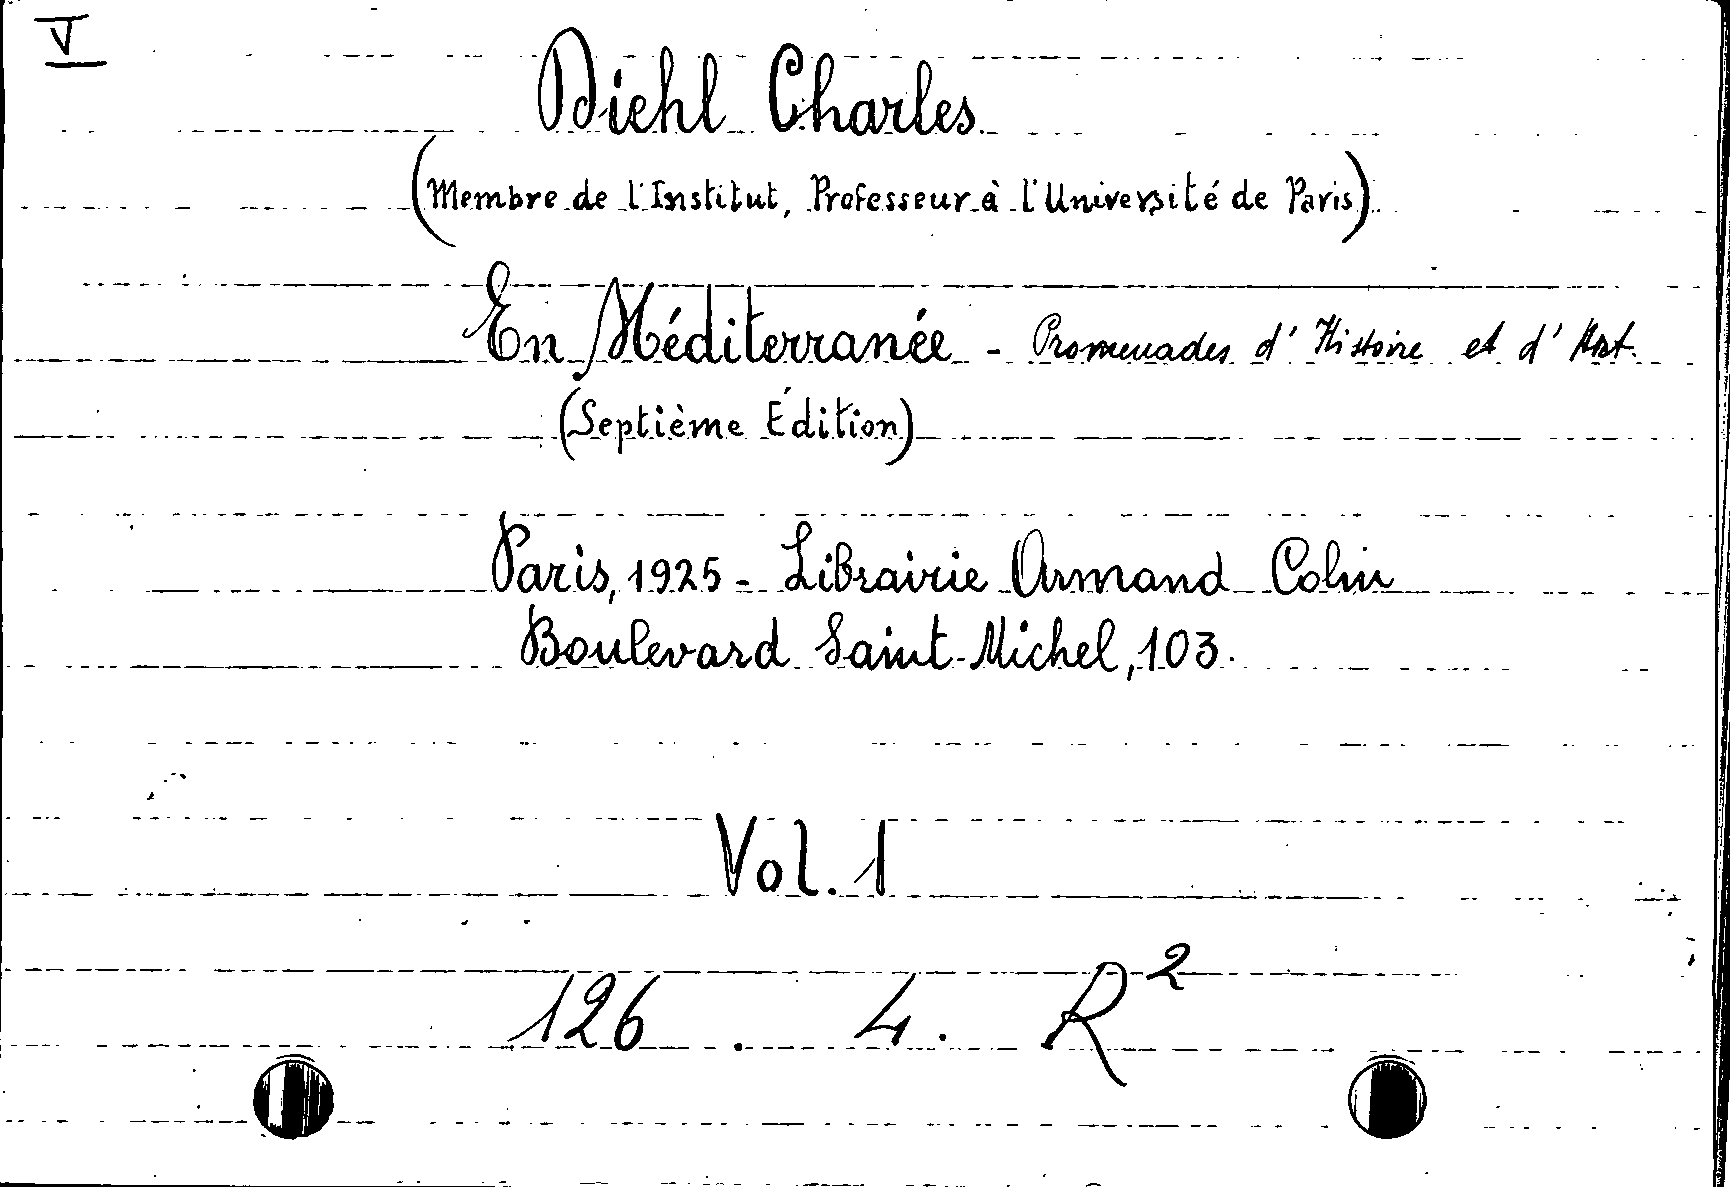 V
Diehl Charles
(Membre de l'Institut, Professeur à l'Université de Paris)
En Méditerranée - Promenades d'Histoire et d'Art.
(Septième Édition)
Paris, 1925 - Librairie Armand Colin
Boulevard Saint-Michel, 103.
Vol. 1
126 . 4. R²